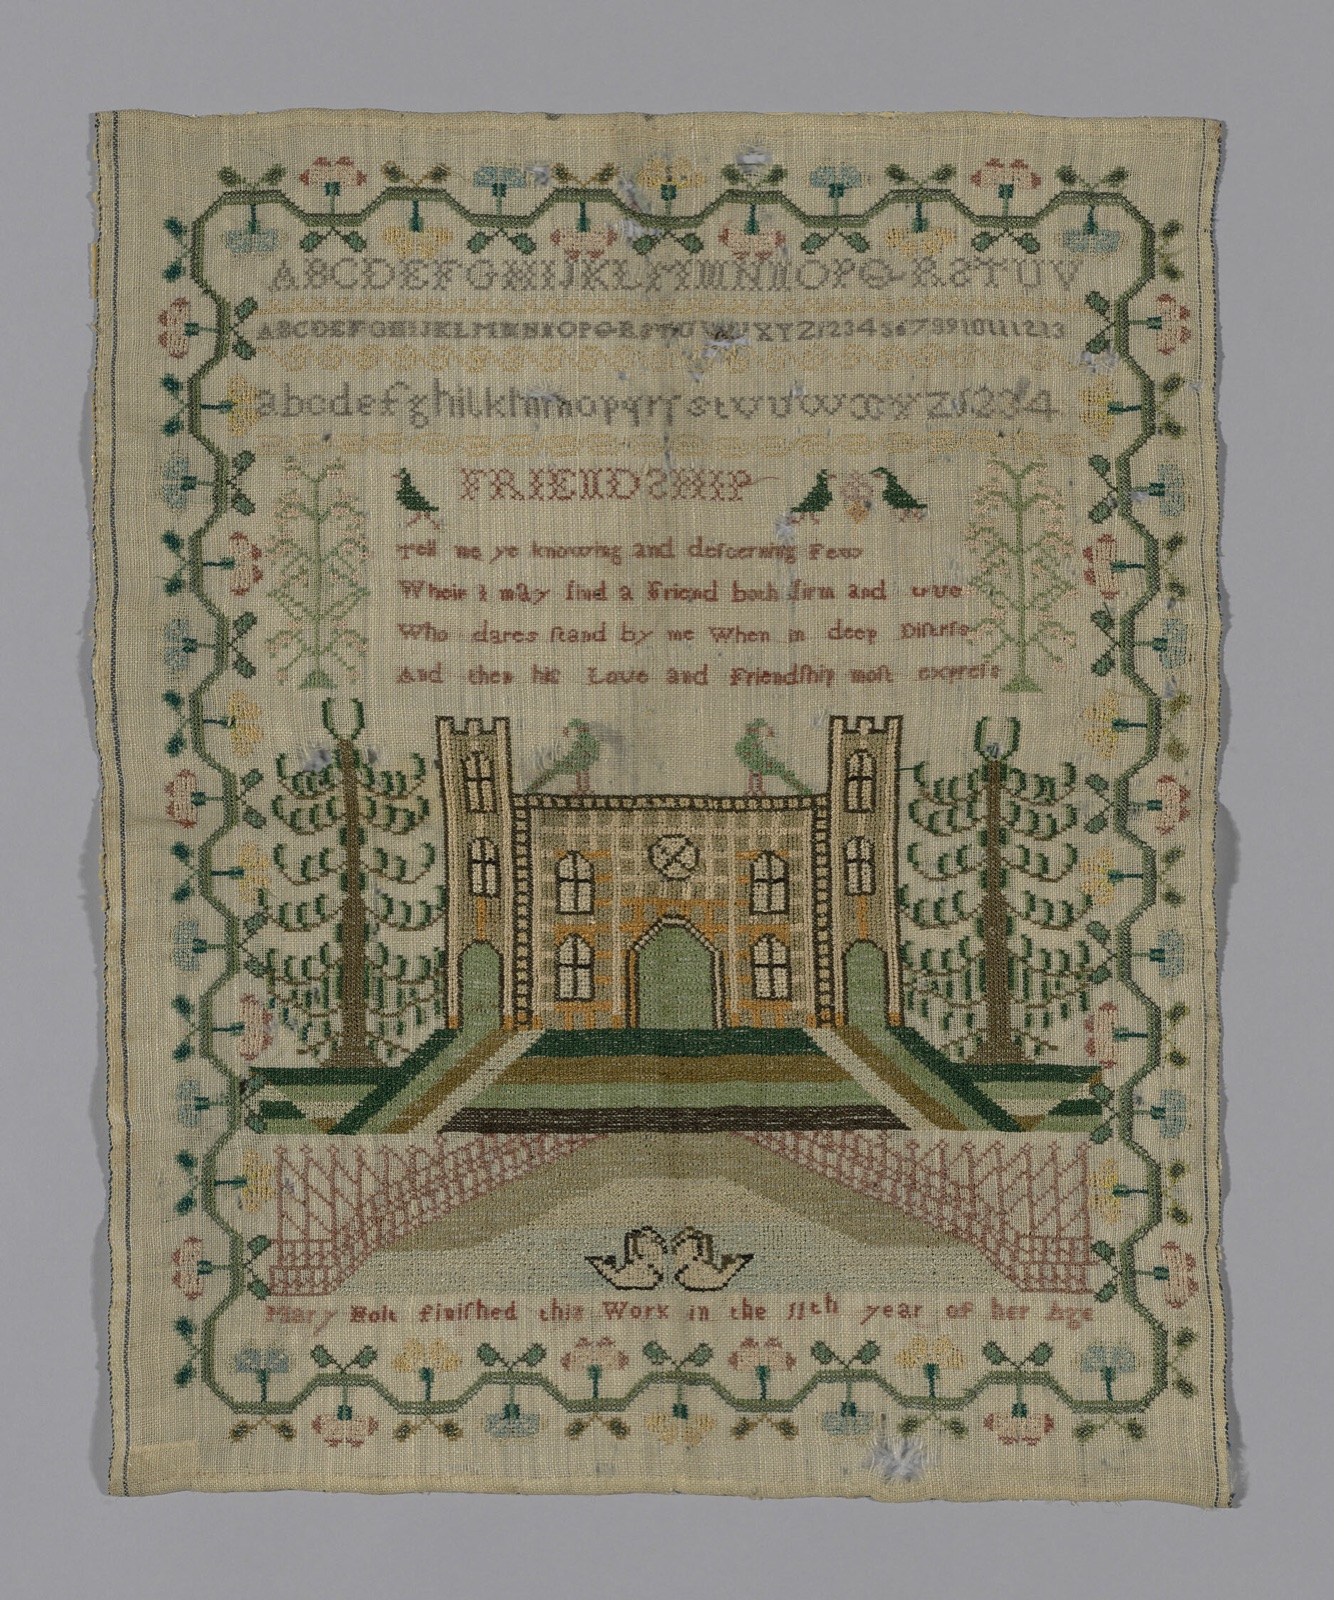 ABCDEFGHIJKLMMNNOPQRSTUV
ABCDEFGHIJKLMMNNOPQRSTUVWXYZ12345678910111213
abcdefghilklmnopqrſstvuwxyz1234
FRIENDSHIP
Tell me ye knowing and deſcerning Few
Wheir I may find a Friend both firm and true
Who dares ſtand by me When in deep Diſtreſs
And then his Love and Friendſhip moſt expreſs
Mary Holt finiſhed this Work in the 11th year of her Age